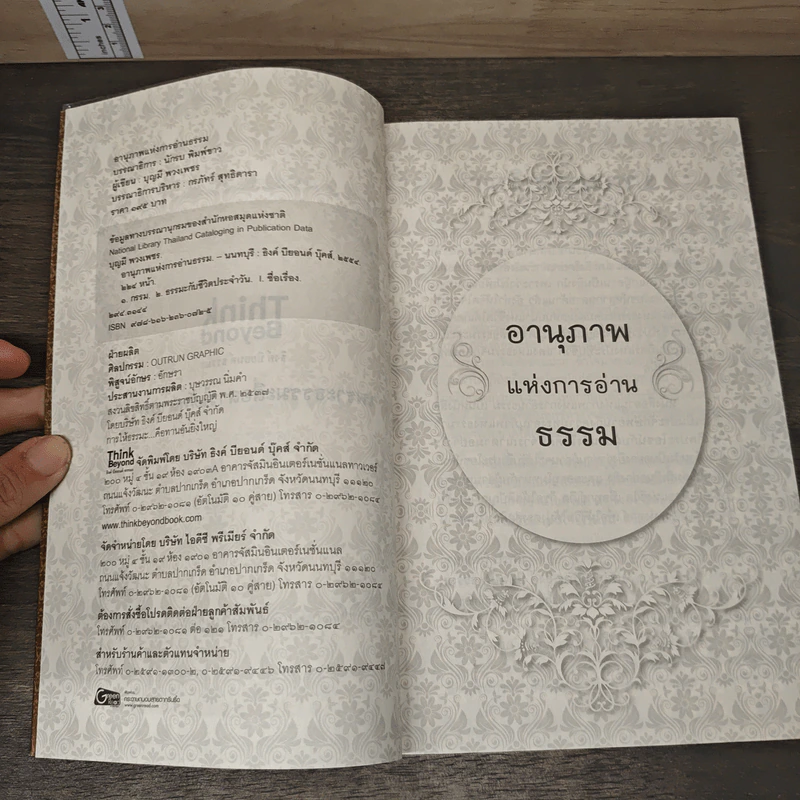 อานุภาพแห่งการอ่านธรรม
บรรณาธิการ : นักรบ พิมพ์ขาว
ผู้เขียน : บุญมี พวงเพชร
บรรณาธิการบริหาร : กรภัทร์ สุทธิดารา
ราคา ๑๙๕ บาท
ข้อมูลทางบรรณานุกรมของสำนักหอสมุดแห่งชาติ
National Library Thailand Cataloging in Publication Data
บุญมี พวงเพชร
อานุภาพแห่งการอ่านธรรม. – นนทบุรี : ธิงค์ บียอนด์ บุ๊คส์, ๒๕๕๔
๒๒๔ หน้า.
๑. กรรม. ๒. ธรรมะกับชีวิตประจำวัน. I. ชื่อเรื่อง.
๒๙๔.๓๑๔๔
ISBN ๙๗๘-๖๑๖-๒๓๖-๐๗๒-๕
ฝ่ายผลิต
ศิลปกรรม : OUTRUN GRAPHIC
พิสูจน์อักษร : อักษรา
ประสานงานการผลิต : บุษวรรณ นิ่มคำ
สงวนลิขสิทธิ์ตามพระราชบัญญัติ พ.ศ. ๒๕๓๗
โดยบริษัท ธิงค์ บียอนด์ บุ๊คส์ จำกัด
การให้ธรรมะ...คือทานอันยิ่งใหญ่
Think Beyond จัดพิมพ์โดย บริษัท ธิงค์ บียอนด์ บุ๊คส์ จำกัด
๒๐๐ หมู่ ๔ ชั้น ๑๙ ห้อง ๑๙๐๓A อาคารจัสมินอินเตอร์เนชั่นแนลทาวเวอร์
ถนนแจ้งวัฒนะ ตำบลปากเกร็ด อำเภอปากเกร็ด จังหวัดนนทบุรี ๑๑๑๒๐
โทรศัพท์ ๐-๒๙๖๒-๑๐๘๑ (อัตโนมัติ ๑๐ คู่สาย) โทรสาร ๐-๒๙๖๒-๑๐๘๔
www.thinkbeyondbook.com
จัดจำหน่ายโดย บริษัท ไอดีซี พรีเมียร์ จำกัด
๒๐๐ หมู่ ๔ ชั้น ๑๙ ห้อง ๑๙๐๑ อาคารจัสมินอินเตอร์เนชั่นแนล
ถนนแจ้งวัฒนะ ตำบลปากเกร็ด อำเภอปากเกร็ด จังหวัดนนทบุรี ๑๑๑๒๐
โทรศัพท์ ๐-๒๙๖๒-๑๐๘๑ (อัตโนมัติ ๑๐ คู่สาย) โทรสาร ๐-๒๙๖๒-๑๐๘๔
ต้องการสั่งซื้อโปรดติดต่อฝ่ายลูกค้าสัมพันธ์
โทรศัพท์ ๐-๒๙๖๒-๑๐๘๑ ต่อ ๑๒๑ โทรสาร ๐-๒๙๖๒-๑๐๘๔
สำหรับร้านค้าและตัวแทนจำหน่าย
โทรศัพท์ ๐-๒๕๙๑-๑๓๐๐-๒, ๐-๒๕๙๑-๙๔๔๖ โทรสาร ๐-๒๕๙๑-๙๔๔๗
อานุภาพ
แห่งการอ่าน
ธรรม